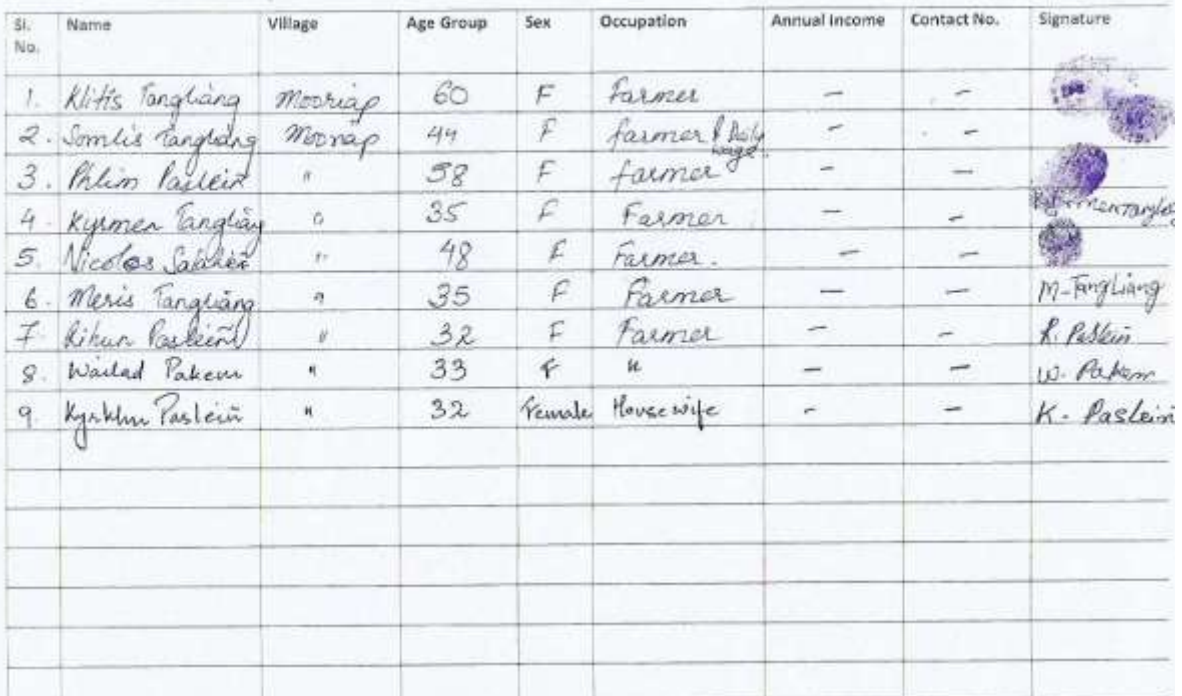 Sl. No. Name Village Age Group Sex Occupation Annual Income Contact No. Signature
1. Klitis Tangliang Mooriap 60 F Farmer - -
2. Somlis Tangliang Moorap 44 F farmer & Daily wage. - -
3. Phlim Paslein " 58 F farmer - -
4. Kyrmen Tangliang " 35 F Farmer - -
5. Nicolos " 48 F Farmer. - -
6. Meris Tangliang " 35 F Farmer - - M-Tangliang
7. Rihun Paslein " 32 F Farmer - - R. Paslein
8. Wailad Pakem " 33 F " - - W. Pakem
9. Paslein " 32 Female Housewife - - K. Paslein